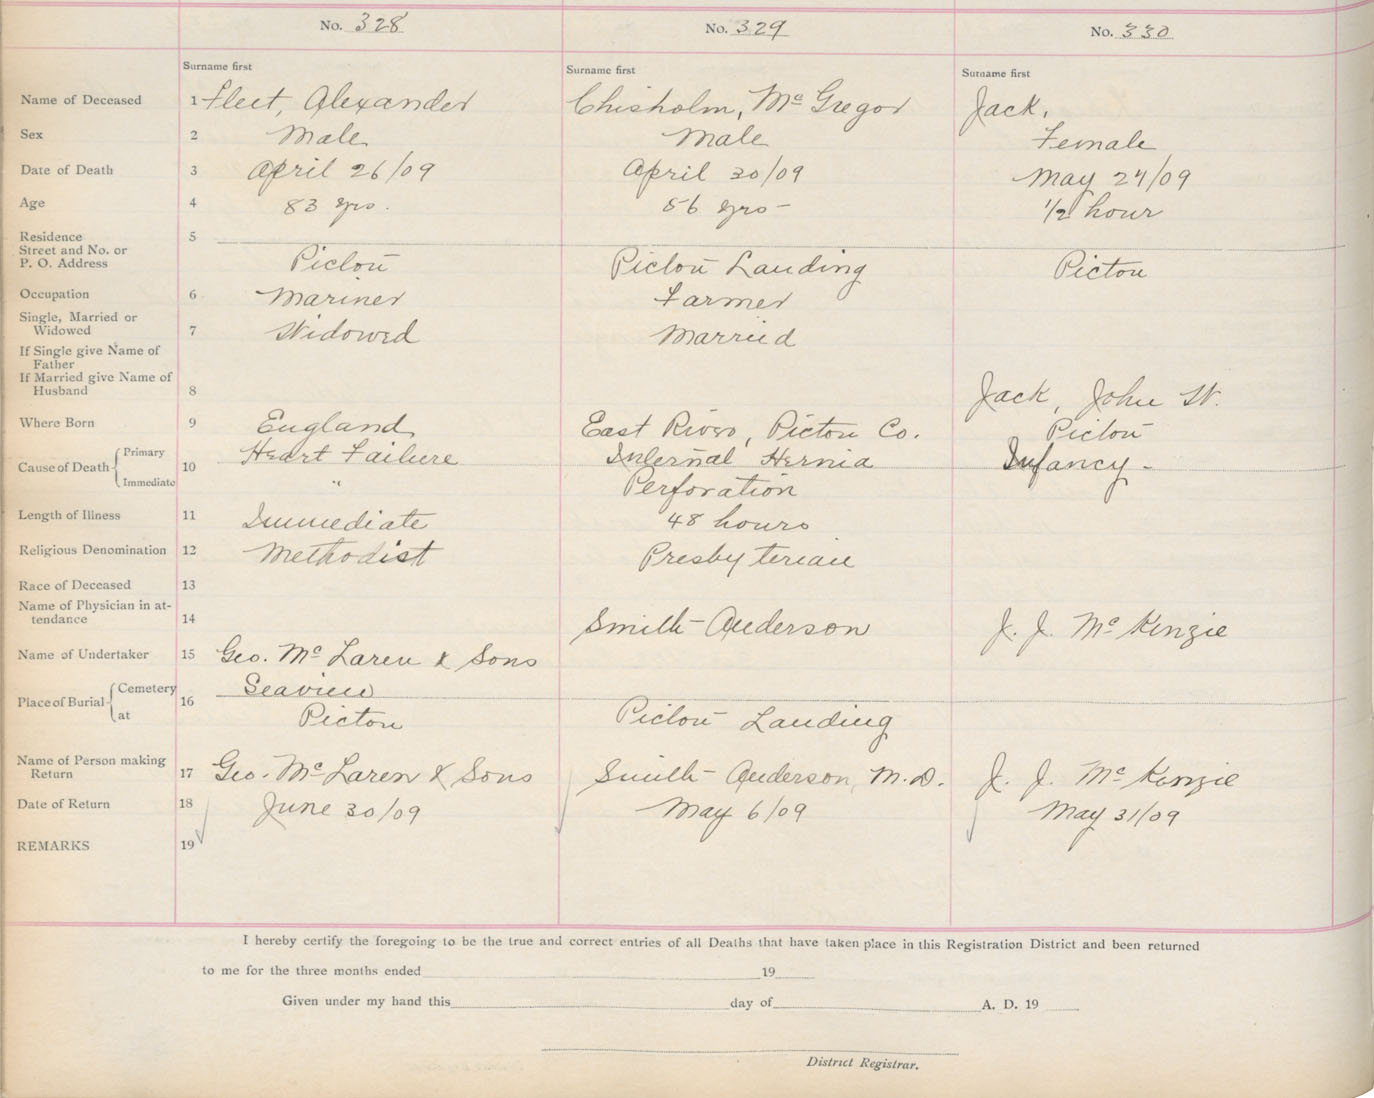 No. 328 No. 329 No. 330
Surname first Surname first Surname first
Name of Deceased 1 Fleet, Alexander Chisholm, Mc Gregor Jack,
Sex 2 Male Male Female
Date of Death 3 April 26/09 April 30/09 May 24/09
Age 4 83 yrs. 56 yrs- 1/2 hour
Residence 5
Street and No. or
P. O. Address Pictou Pictou Landing Pictou
Occupation 6 Mariner Farmer
Single, Married or
Widowed 7 Widowed Married
If Single give Name of
Father
If Married give Name of
Husband 8 Jack, John W.
Where Born 9 England East River, Pictou Co. Pictou
Cause of Death Primary 10 Heart Failure Internal Hernia Infancy-
Immediate " Perforation
Length of Illness 11 Immediate 48 hours
Religious Denomination 12 Methodist Presbyterian
Race of Deceased 13
Name of Physician in at-
tendance 14 Smith-Anderson J. J. Mc Kenzie
Name of Undertaker 15 Geo. Mc Laren & Sons
Place of Burial Cemetery 16 Seaview
at Pictou Pictou Landing
Name of Person making
Return 17 Geo. Mc Laren & Sons Smith-Anderson, M.D. J. J. Mc Kenzie
Date of Return 18 June 30/09 May 6/09 May 31/09
REMARKS 19
I hereby certify the foregoing to be the true and correct entries of all Deaths that have taken place in this Registration District and been returned
to me for the three months ended 19
Given under my hand this day of A. D. 19
District Registrar.